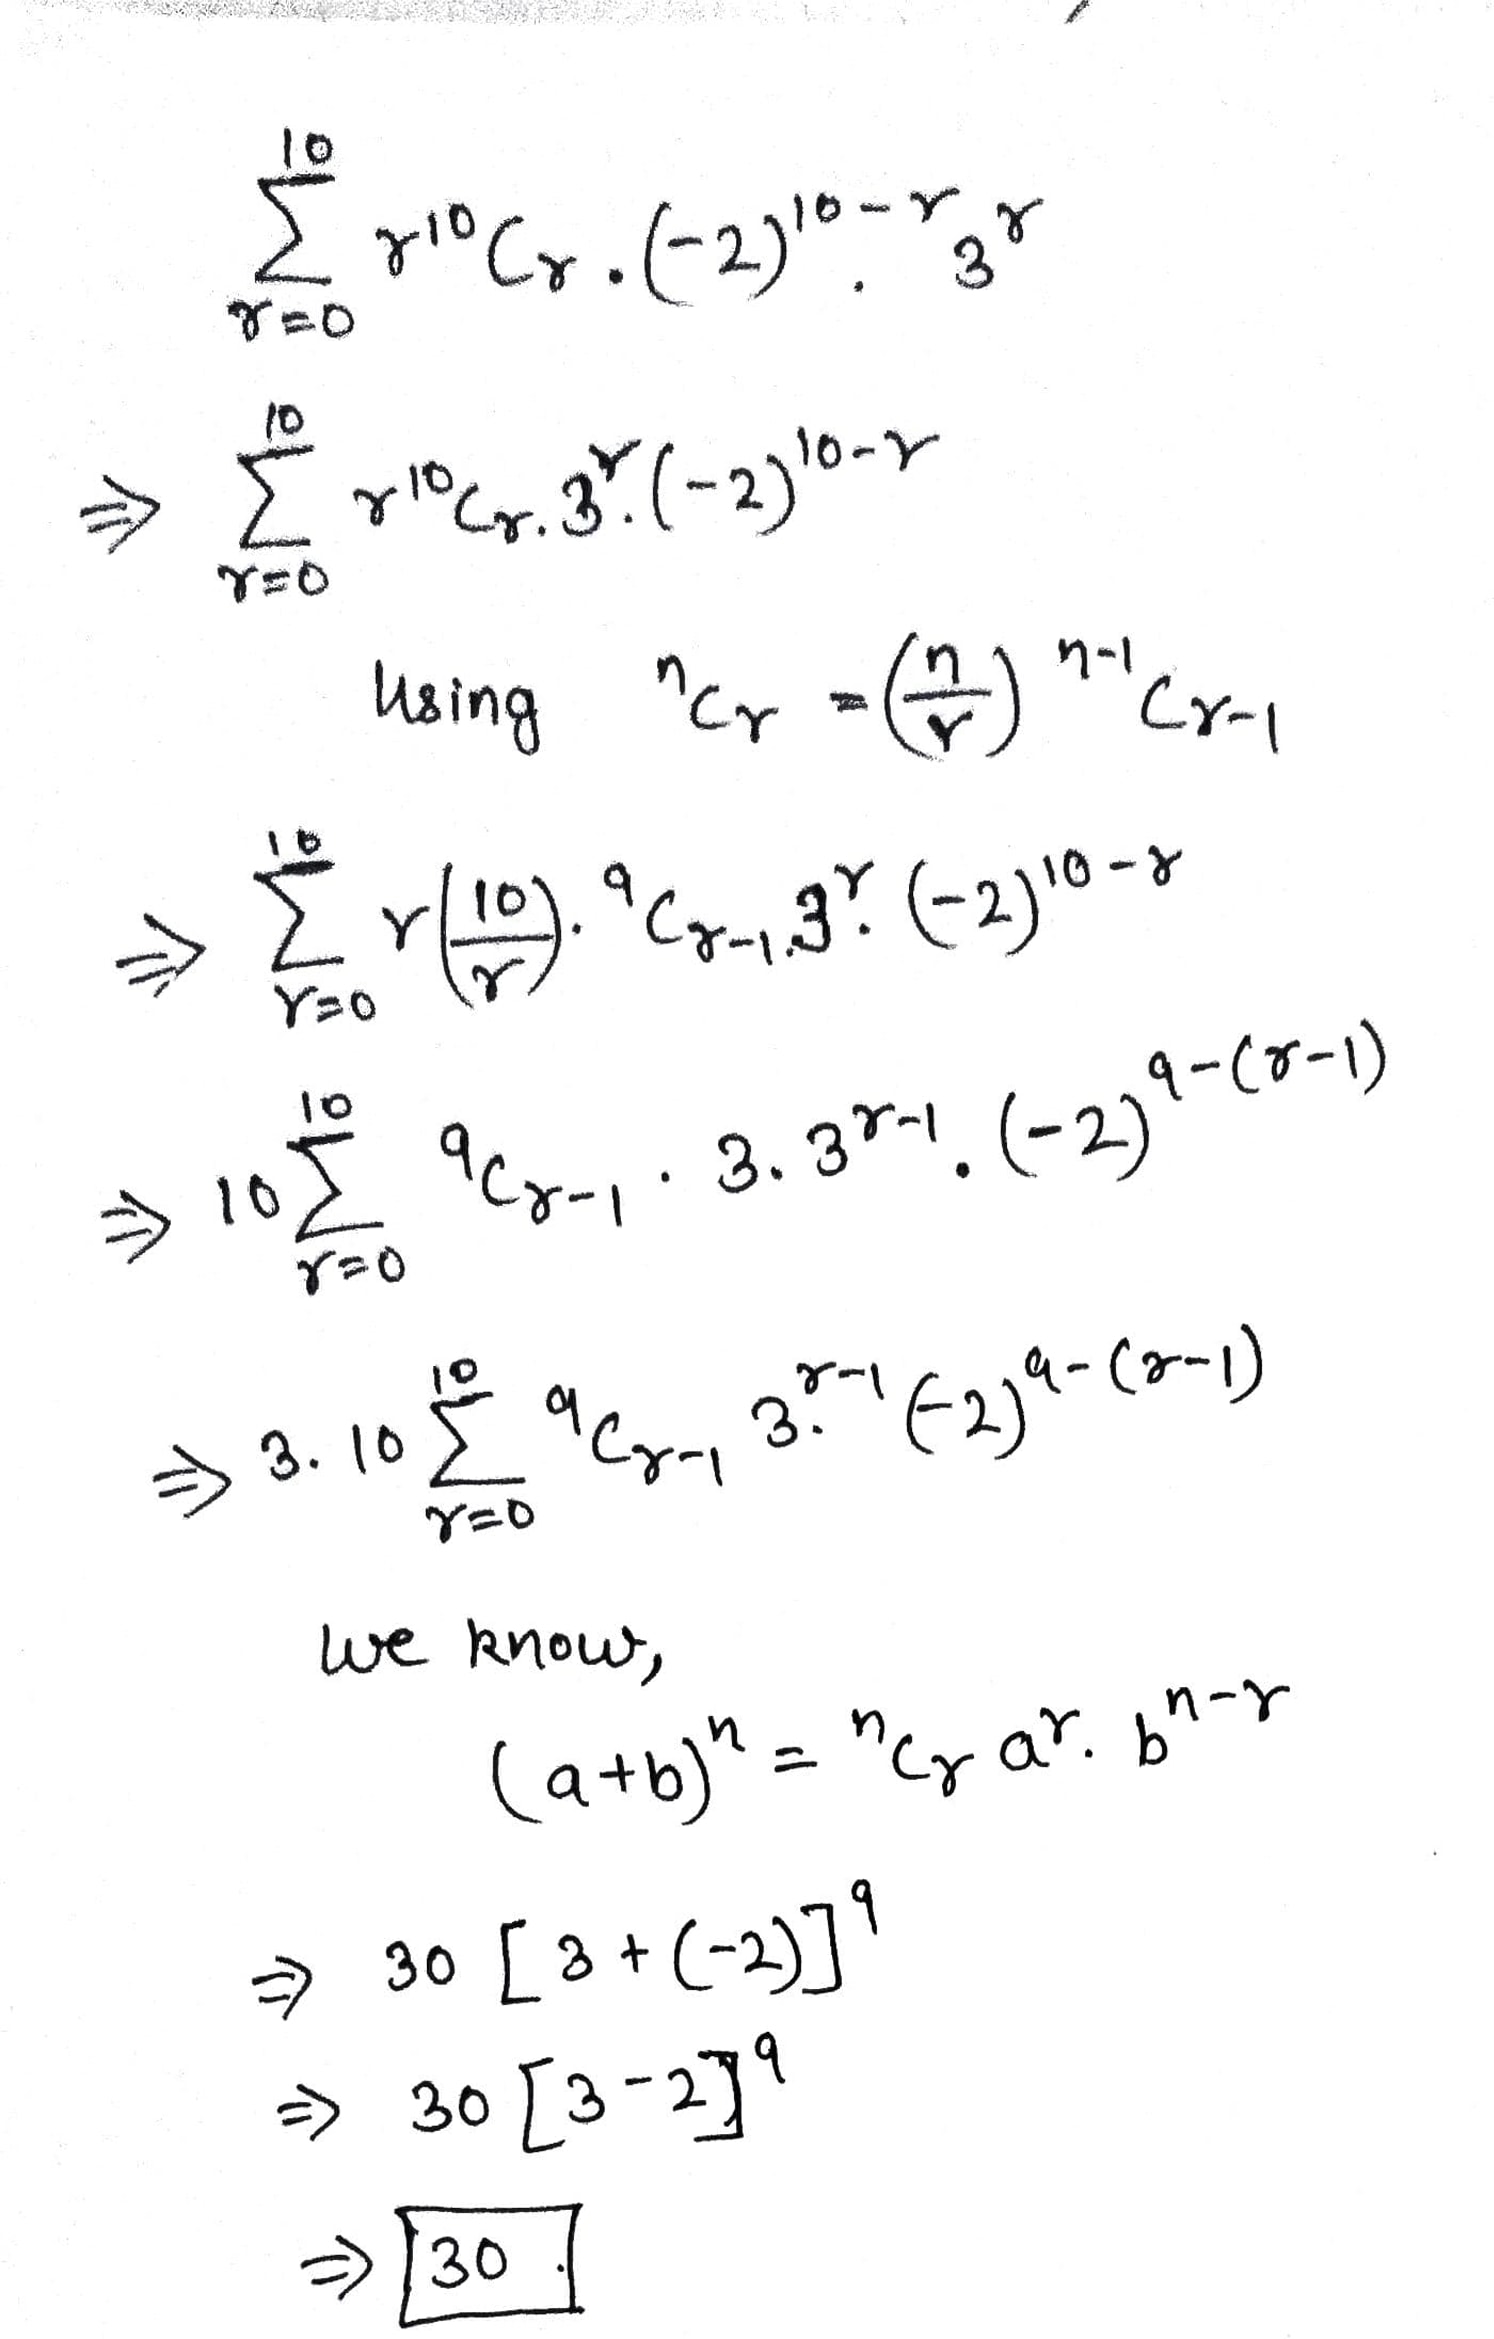 \sum_{r=0}^{10} r {}^{10}C_r . (-2)^{10-r} . 3^r
⇒ \sum_{r=0}^{10} r {}^{10}C_r . 3^r . (-2)^{10-r}
Using {}^nC_r = (\frac{n}{r}) {}^{n-1}C_{r-1}
⇒ \sum_{r=0}^{10} r (\frac{10}{r}) . {}^9C_{r-1} . 3^r . (-2)^{10-r}
⇒ 10 \sum_{r=0}^{10} {}^9C_{r-1} . 3 . 3^{r-1} . (-2)^{9-(r-1)}
⇒ 3 . 10 \sum_{r=0}^{10} {}^9C_{r-1} 3^{r-1} . (-2)^{9-(r-1)}
We know,
(a+b)^n = {}^nC_r a^r . b^{n-r}
⇒ 30 [3+(-2)]^9
⇒ 30 [3-2]^9
⇒ 30 .